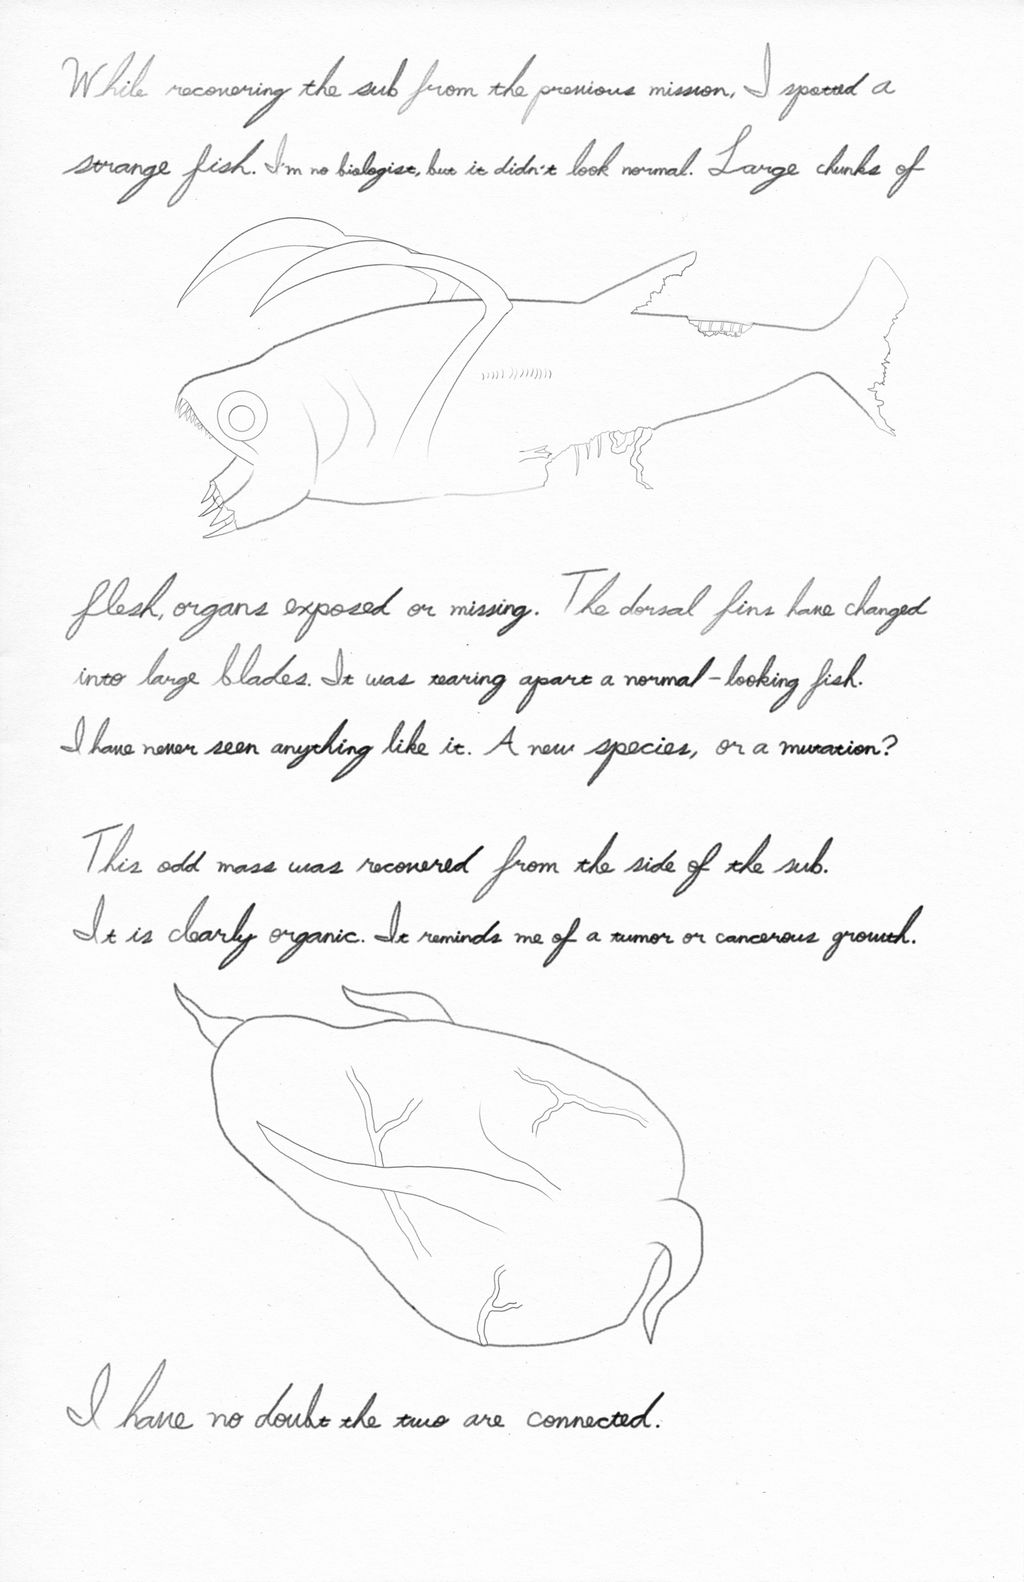 While recovering the sub from the previous mission, I spotted a
strange fish. I'm no biologist, but it didn't look normal. Large chunks of
flesh, organs exposed or missing. The dorsal fins have changed
into large blades. It was tearing apart a normal-looking fish.
I have never seen anything like it. A new species, or a mutation?
This odd mass was recovered from the side of the sub.
It is clearly organic. It reminds me of a tumor or cancerous growth.
I have no doubt the two are connected.